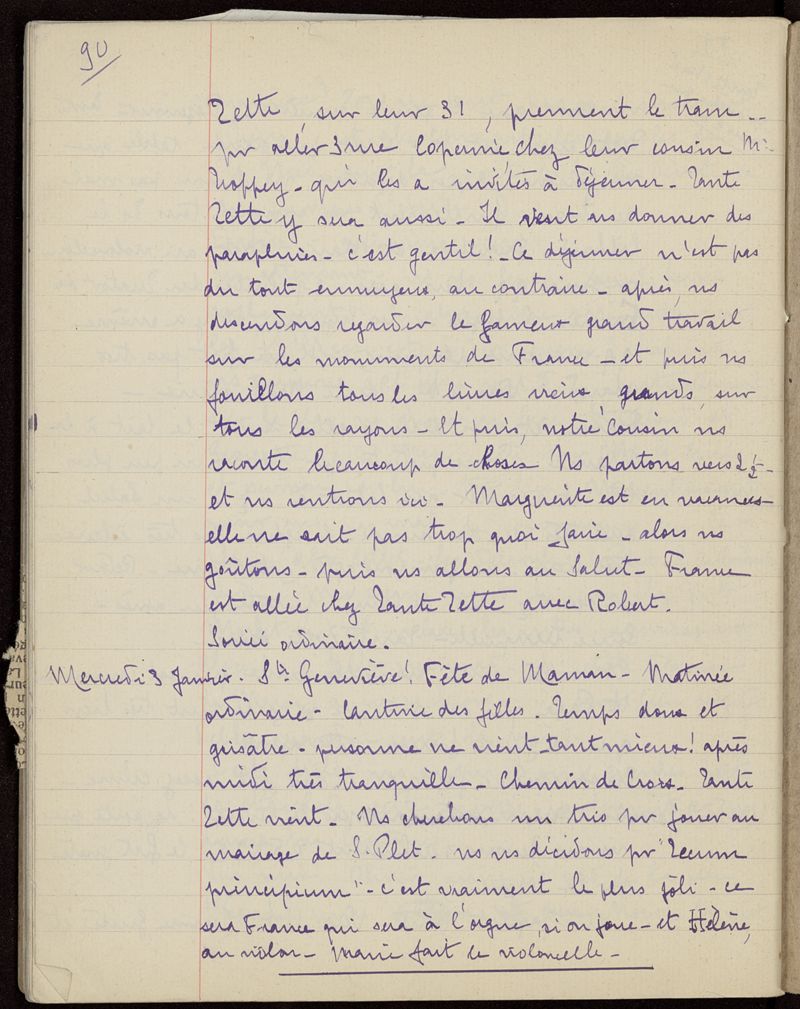 90
Zette, sur leur 31, prennent le tram..
pr aller 3 rue Copernic, chez leur cousin Mr
Troppey - qui les a invités à déjeuner - Tante
Zette y sera aussi - Il veut ns donner des
parapluies - c'est gentil! - Ce déjeuner n'est pas
du tout ennuyeux, au contraire - après, ns
descendons regarder le fameux grand travail
sur les monuments de France - et puis ns
fouillons tous les livres vieux, grands, sur
tous les rayons - Et puis, notre cousin ns
raconte beaucoup de choses Ns partons vers 2 1/2 -
et ns rentrons ici - Marguerite est en vacances
elle ne sait pas trop quoi faire - alors ns
goûtons - puis ns allons au Salut - France
est allée chez Tante Zette avec Robert.
Soirée ordinaire.
Mercredi 3 Janvier. Ste Geneviève! Fête de Maman - Matinée
ordinaire - Cantine des filles. Temps doux et
grisâtre - personne ne vient - tant mieux! après
midi très tranquille - Chemin de Croix - Tante
Zette vient - Ns cherchons un trio pr jouer au
mariage de S. Plet. ns ns décidons pr "Tecum
principium" - c'est vraiment le plus joli - ce
sera France qui sera à l'orgue, si on joue - et Hélène,
au violon - Marie fait le violoncelle -